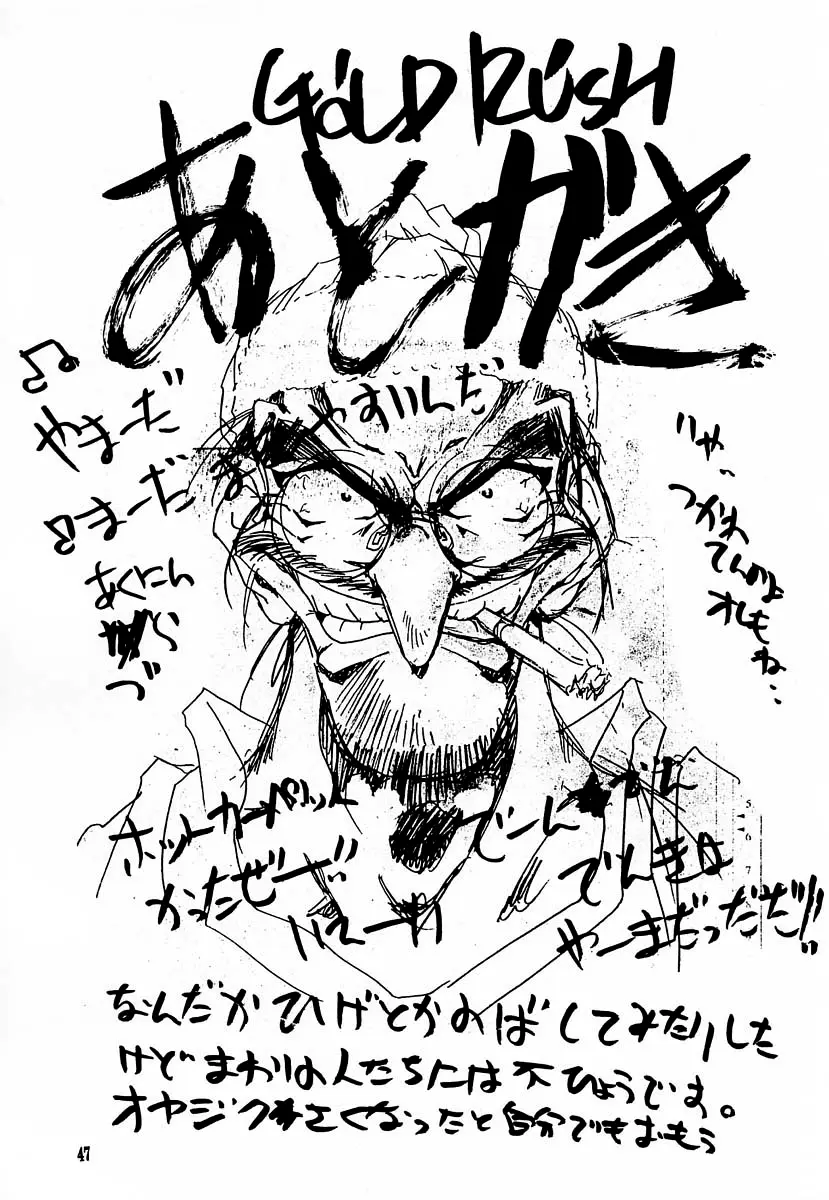 GOLD RUSH
あとがき
♪やまーだ
♪まーだ まー やすいんだ
あくにん
づら
いやー
つかれ
てんのよ
オレもね…
ホットカーペット
かったぜー!!
いえーい
でーん★でん
でんきは
やーまだっだだ!!
なんだかひげとかのばしてみたりした
けどまわりの人たちには不ひょうです。
オヤジクさくなったと自分でもおもう
47